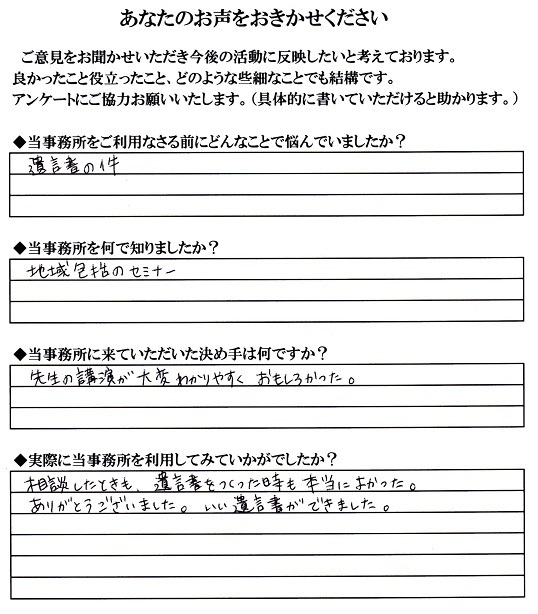 あなたのお声をおきかせください
ご意見をお聞かせいただき今後の活動に反映したいと考えております。
良かったこと役立ったこと、どのような些細なことでも結構です。
アンケートにご協力お願いいたします。（具体的に書いていただけると助かります。）
◆当事務所をご利用なさる前にどんなことで悩んでいましたか？
遺言書の件
◆当事務所を何で知りましたか？
地域包括のセミナー
◆当事務所に来ていただいた決め手は何ですか？
先生の講演が大変わかりやすく おもしろかった。
◆実際に当事務所を利用してみていかがでしたか？
相談したときも、遺言書をつくった時も本当によかった。
ありがとうございました。いい遺言書ができました。